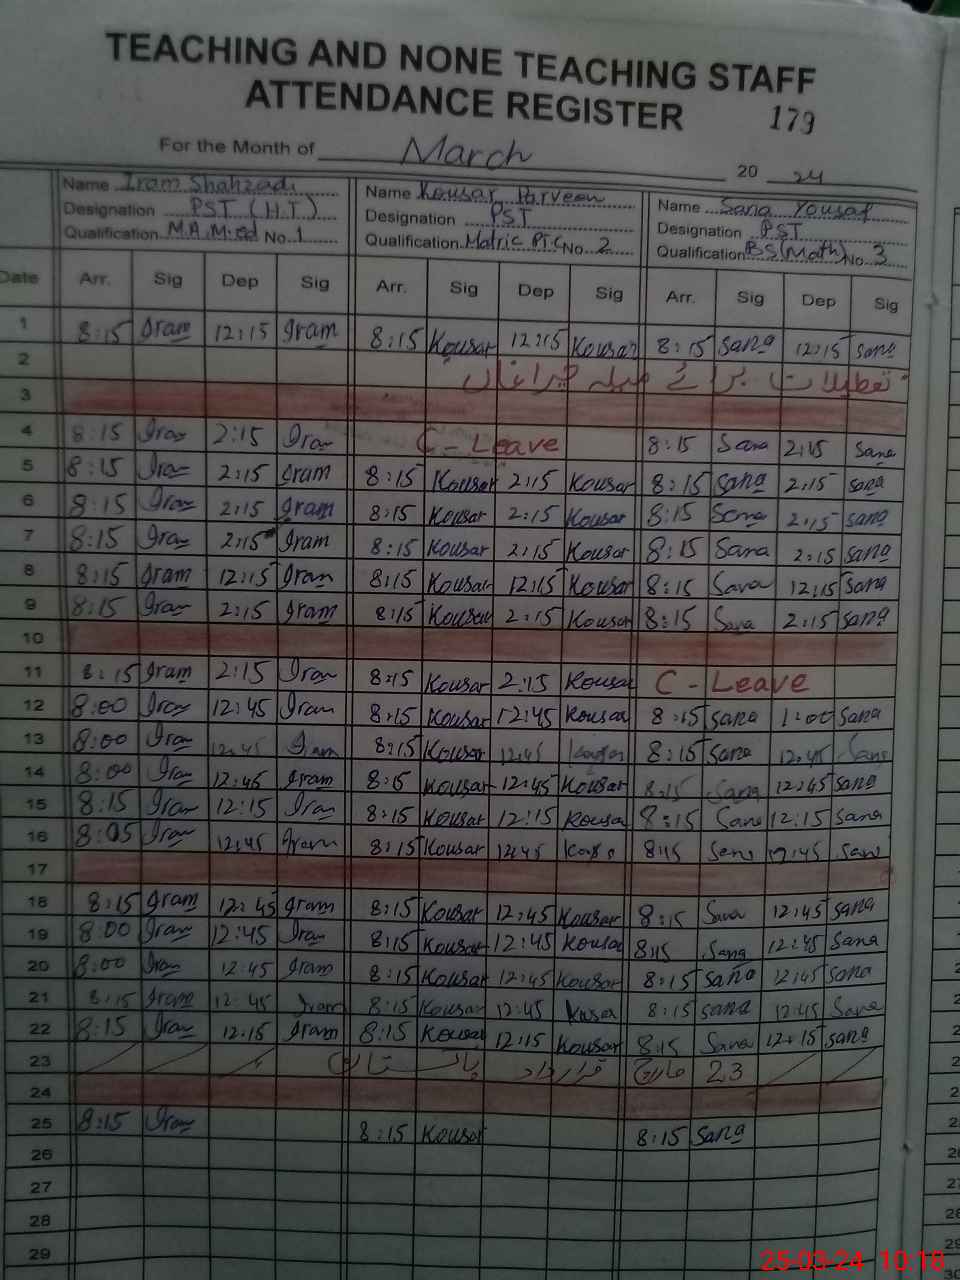 TEACHING AND NONE TEACHING STAFF
ATTENDANCE REGISTER 179
For the Month of March 20 24
Name Iram Shahzadi Name Kousar Parveen Name Sana Yousaf
Designation PST (H.T) Designation PST Designation PST
Qualification M.A M.ed No. 1 Qualification Matric P.T.C No. 2 Qualification BS(Math) No. 3
Date Arr. Sig Dep Sig Arr. Sig Dep Sig Arr. Sig Dep Sig
1 8:15 Iram 12:15 Iram 8:15 Kousar 12:15 Kousar 8:15 Sana 12:15 Sana
2 تعطیلات برائے میلہ چراغاں
3
4 8:15 Iram 2:15 Iram C - Leave 8:15 Sana 2:15 Sana
5 8:15 Iram 2:15 Iram 8:15 Kousar 2:15 Kousar 8:15 Sana 2:15 Sana
6 8:15 Iram 2:15 Iram 8:15 Kousar 2:15 Kousar 8:15 Sana 2:15 Sana
7 8:15 Iram 2:15 Iram 8:15 Kousar 2:15 Kousar 8:15 Sana 2:15 Sana
8 8:15 Iram 12:15 Iram 8:15 Kousar 12:15 Kousar 8:15 Sana 12:15 Sana
9 8:15 Iram 2:15 Iram 8:15 Kousar 2:15 Kousar 8:15 Sana 2:15 Sana
10
11 8:15 Iram 2:15 Iram 8:15 Kousar 2:15 Kousar C - Leave
12 8:00 Iram 12:45 Iram 8:15 Kousar 12:45 Kousar 8:15 Sana 1:00 Sana
13 8:00 Iram 12:45 Iram 8:15 Kousar 12:45 Kousar 8:15 Sana 12:45 Sana
14 8:00 Iram 12:45 Iram 8:15 Kousar 12:45 Kousar 8:15 Sana 12:45 Sana
15 8:15 Iram 12:15 Iram 8:15 Kousar 12:15 Kousar 8:15 Sana 12:15 Sana
16 8:05 Iram 12:45 Iram 8:15 Kousar 12:45 8:15 Sana 12:45 Sana
17
18 8:15 Iram 12:45 Iram 8:15 Kousar 12:45 Kousar 8:15 Sana 12:45 Sana
19 8:00 Iram 12:45 Iram 8:15 Kousar 12:45 Kousar 8:15 Sana 12:45 Sana
20 8:00 Iram 12:45 Iram 8:15 Kousar 12:45 Kousar 8:15 Sana 12:45 Sana
21 8:15 Iram 12:45 Iram 8:15 Kousar 12:45 Kousar 8:15 Sana 12:45 Sana
22 8:15 Iram 12:15 Iram 8:15 Kousar 12:15 Kousar 8:15 Sana 12:15 Sana
23 23 مارچ قرارداد پاکستان
24
25 8:15 Iram 8:15 Kousar 8:15 Sana
26
27
28
29
25-03-24 10:18